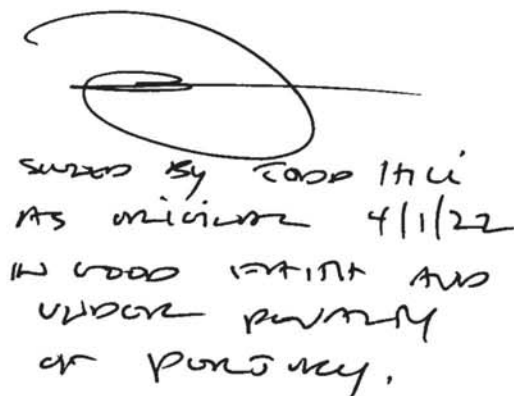 SIGNED BY TODD
AS ORIGINAL 4/1/22
IN GOOD FAITH AND
UNDER PENALTY
OF PERJURY.